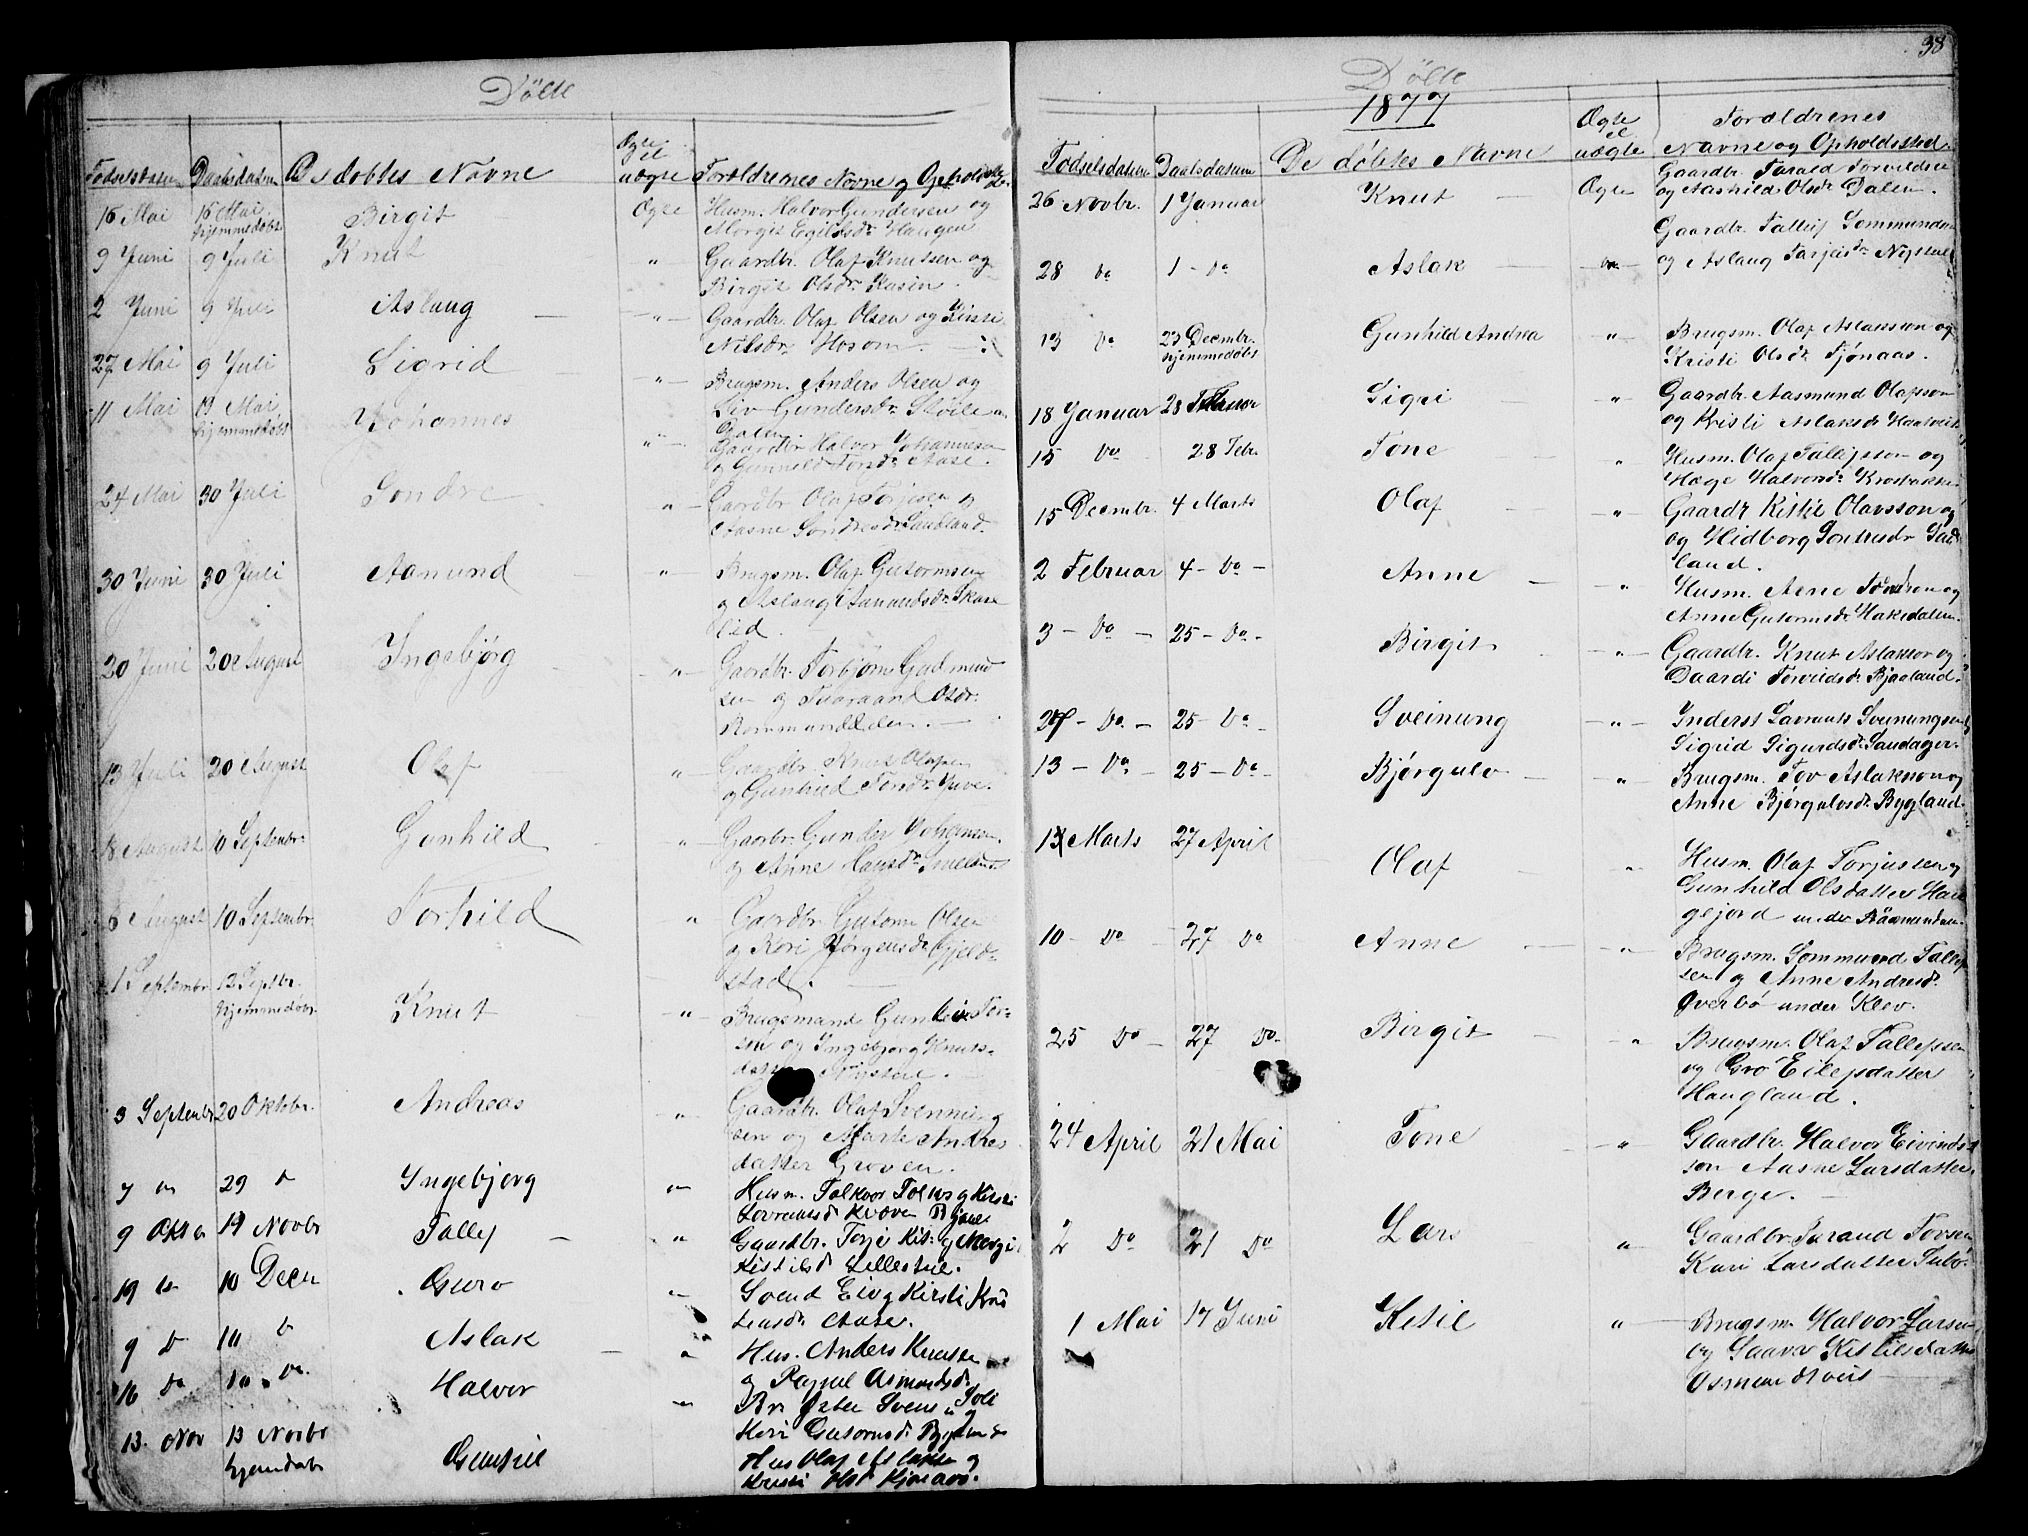 Döbte
Fødselsdatum Daabsdatum De døbtes Navne Ægte el uægte Forældrenes Navne og Opholdssted
16 Mai 16 Mai hjemmedøbt Birgit Ægte Husm. Halvor Gundersen og
Margit Egilsdr. Haugen
9 Juni 9 Juli Knut " Gaardbr. Olaf Knutsen og
Birgit Olsdr.
2 Juni 9 Juli Aslaug " Gaardbr. Olaf Olsen og Kirsti
Nilsdr. Mosom.
27 Mai 9 Juli Sigrid " Brugsm. Anders Olsen og
Liv Gundersdr.
Dalen
11 Mai 19 Mai hjemmedøbt Johannes " Gaardbr. Halvor Johannesen
og Gunhild Torsdr. Aase.
24 Mai 30 Juli Sondre " Gaardbr. Olaf Torjesen og
Aasne Sondresdr. Sandland.
30 Juni 30 Juli Asmund " Brugsm. Olaf Gutormsen
og Aslaug Asmundsdr. Skare
lid.
20 Juni 20 August Ingebjørg " Gaardbr. Torbjørn Gudmund
sen og Olsdr.
13 Juli 20 August Olaf " Gaardbr. Knut Olafsen
og Gunhild Torsdr. Juve.
8 August 10 Septembr. Gunhild " Gaardbr. Gunder Johansen
og Anne Hansdr.
6 August 10 Septembr. Torhild " Gaardbr. Gutorm Olsen
og Kari Jørgensdr. Gjeld
stad.
1 Septembr 12 Septbr. hjemmedøbt Knut " Brugsmand Gunleik Tor-
sen og Ingebjørg Knuts-
datter Nysteil.
3 Septembr 20 Oktobr. Andreas " Gaardbr. Olaf Svennung
sen og Marte Andres
datter Groven.
7 " 29 " Ingebjørg " Husm. Talkvor og Kirsti
Bjaal
9 Oktbr 19 Novbr Tallef " Gaardbr. Torje og Margit
Kittilsd Lillestul.
19 " 10 Decbr Guro " Svend Eiv og Kirsti Knu
tensdr. Aase.
9 Do 10 Do Aslak " Hus. Anders Knutsen
og Asmundsdr
16 Do 10 Do. Halvor " Svens
Kari Gutormsd. Bygland
13. Nov 13 Novbr hjemdøbt Gunhild " Hus Olaf Aslaksen og
Kirsti Olsd Kjønaas.
38
Döbte
1877
Fødselsdatum Daabsdatum De döbtes Navne Ægte el uægte Forældrenes Navne og Opholdssted
26 Novbr. 1 Januar Knut Ægte Gaardbr. Tarald Torvildsen
og Aashild Olsdr. Dalen.
28 Do 1 - Do Aslak Do Gaardbr. Tallef Sommundsen
og Aslaug Tarjeisdr. Nysteil
13 Do 23 Decmbr. hjemmedøbt Gunhild Andrea " Brugsm. Olaf Aslaksson og
Kristi Olsdr. Tjønaas.
18 Januar 28 Februar Sigri " Gaardbr. Aasmund Olafsson
og Kristi Aslaksdr. Haatveit
15 Do 28 Febr. Tone " Husm. Olaf Tallefsson og
Hæge Halvorsdr. Krosbakken
15 Decmbr. 4 Marts Olaf " Gaardbr Kittil Olavsson og
og Hidborg Sondresdr Sand
land.
2 Februar 4 - Do - Anne " Husm. Arne Tovdson og
Anne Gutormsdr. Haksdalen.
3 - Do - 25 - Do - Birgit " Gaardbr. Knut Aslakson og
Daardi Torvildsdr. Bjaaland.
27 - Do - 25 - Do - Sveinung " Inderst Lavrants Svenungsen og
Sigrid Sigurdsdr. Sandager.
13 - Do 25 - Do - Bjørgulv " Brugsm. Tov Aslakson og
Anne Bjørgulvsdr. Bygland.
13 Marts 27 April Olaf " Husm. Olaf Torjussen og
Gunhild Olsdatter Hau
gejord under Aasmundsen.
10 - Do 27 Do Anne " Brugsm. Sommund Tallef
sen og Anne Andresdr.
Øverbø under Klev.
25 Do - 27 Do - Birgit " Brugsm. Olaf Tallefsen
og Gro Eilefsdatter
Haugland.
24 April 21 Mai Tone " Gaardbr. Halvor Eivinds
son Aasne Larsdatter
Berge.
2 Do 21 Do Lars " Gaardbr. Tarand Tovsen
Kari Larsdatter
1 Mai 17 Juni Ketil " Brugsm. Halvor Larsen
og Gaarv Kittilsdatter
Osmundtveit